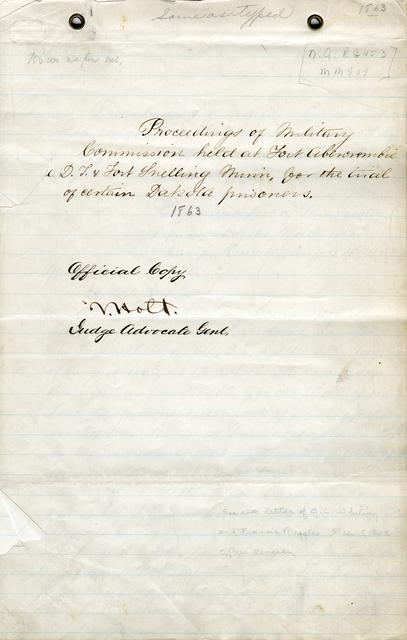 Same as typed
1863
N.A. RG 153
Proceedings of Military
Commission held at Fort Abercrombie
D. T. & Fort Snelling Minn, for the trial
of certain Dakota prisoners.
1863
Official Copy
J. Holt.
Judge Advocate Genl.
See also letter of
and Francis